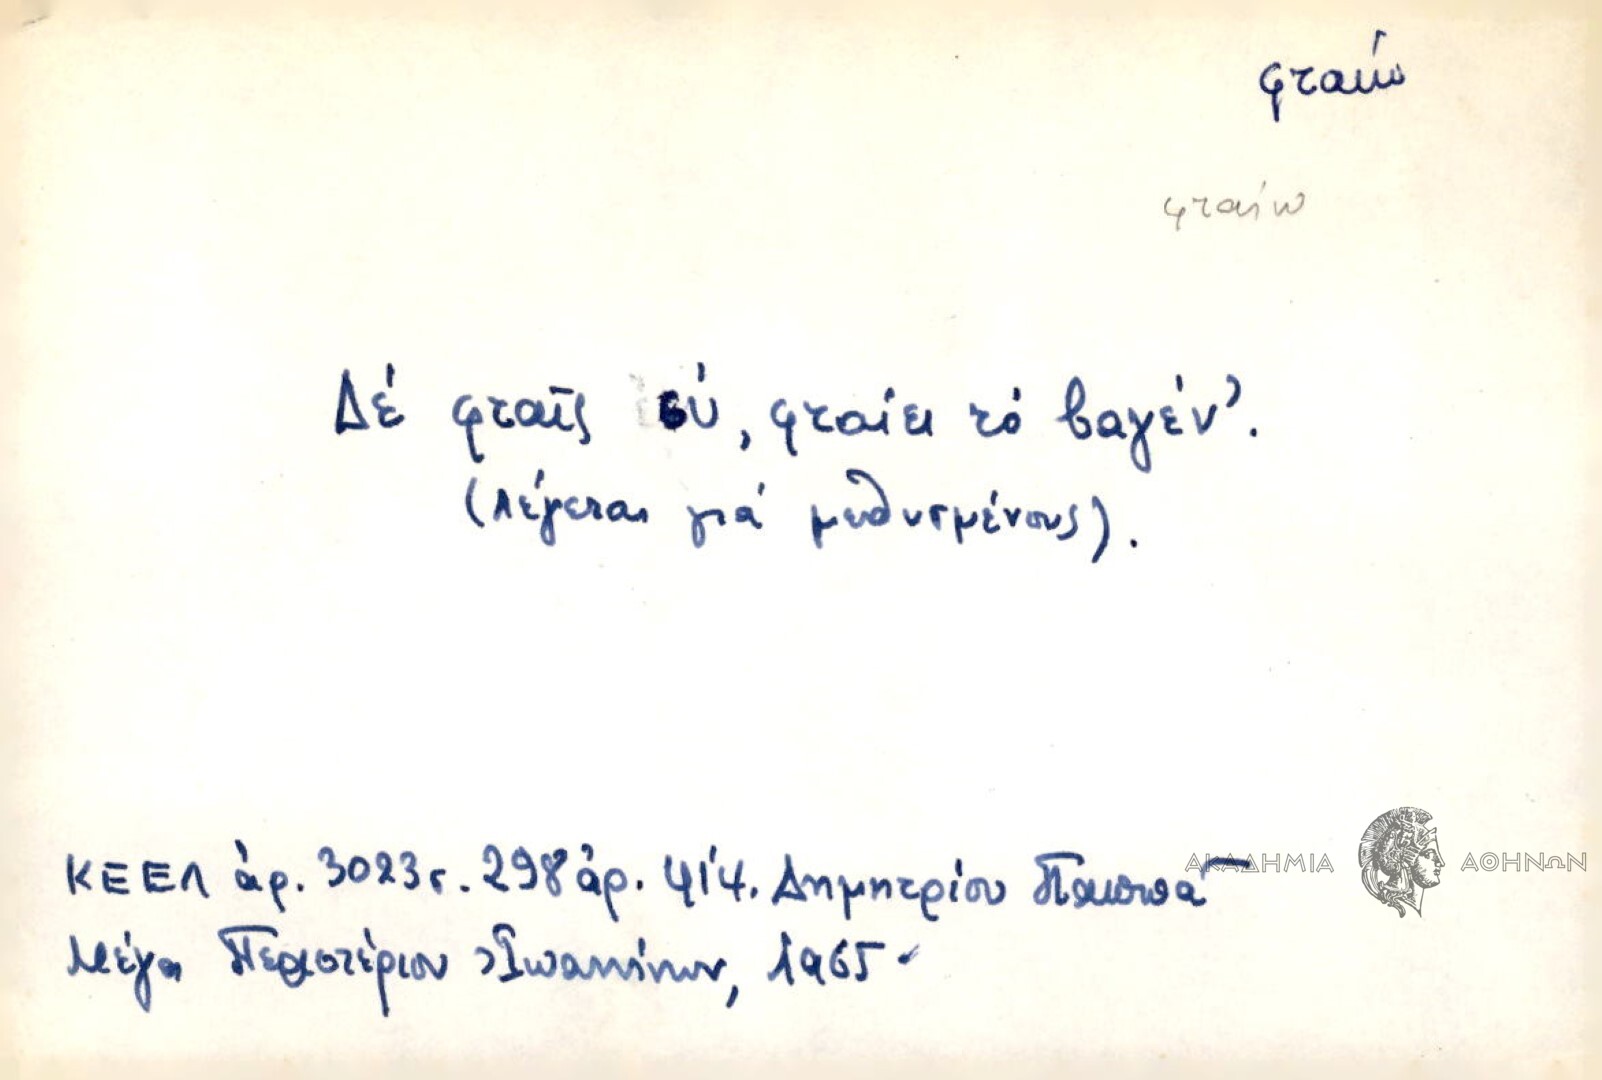 φταίω
φταίω
Δέ φταῖς σύ, φταίει τό βαγέν'.
(λέγεται γιά μεθυσμένους).
ΑΚΑΔΗΜΙΑ ΑΘΗΝΩΝ
ΚΕΕΛ ἀρ. 3023 σ. 298 ἀρ. 414. Δημητρίου Παππᾶ
Μέγα Περιστέριον Ἰωαννίνων, 1965